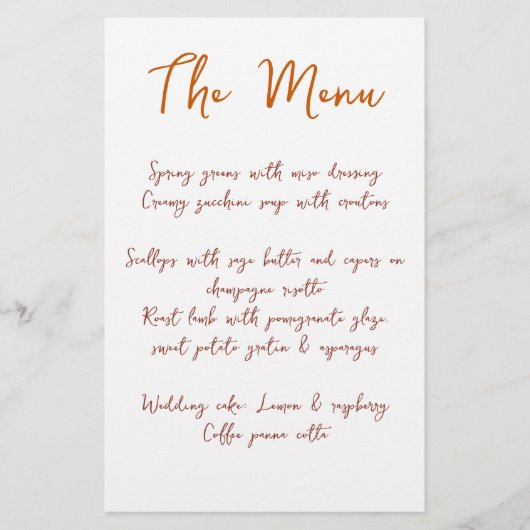 The Menu
Spring greens with miso dressing
Creamy zucchini soup with croutons
Scallops with sage butter and capers on
champagne risotto
Roast lamb with pomegranate glaze,
sweet potato gratin & asparagus
Wedding cake: Lemon & raspberry
Coffee panna cotta